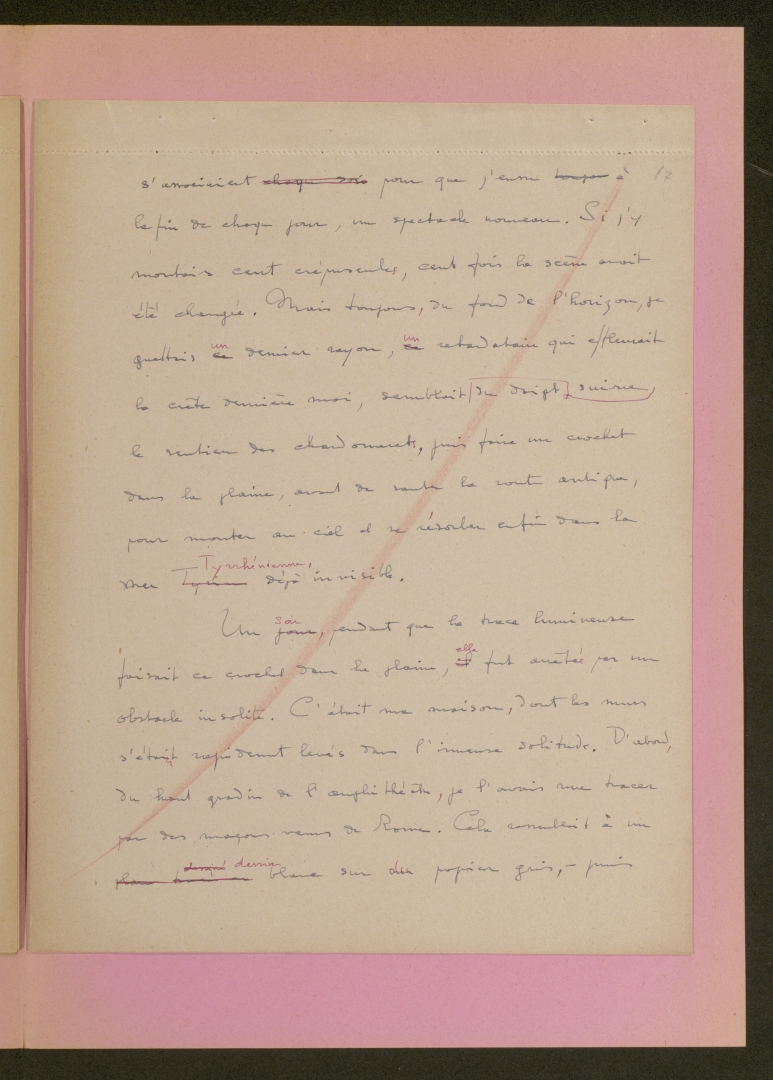 s'associaient chaque soir pour que j'eusse à 17
la fin de chaque jour, un spectacle nouveau. Si j'y
montais cent crépuscules, cent fois la scène avait
été changée. Mais toujours, du fond de l'horizon, je
guettais ce un dernier rayon, ce un retardataire qui effleurait
la crête derrière moi, semblait du doigt suivre
le sentier des chardonnerets, puis faire un crochet
dans la plaine, avant de sauter la route antique,
pour monter au ciel et se résorber enfin dans la
mer Tyrrhénienne, déjà invisible.
Un jour soir, pendant que la trace lumineuse
faisait ce crochet dans la plaine, il elle fut arrêtée par un
obstacle insolite. C'était ma maison, dont les murs
s'était rapidement levés dans l'immense solitude. D'abord,
du haut gradin de l'amphithéâtre, je l'avais vue tracer
par des maçons venus de Rome. Cela ressemblait à un
plan dessin blanc sur du papier gris, – puis